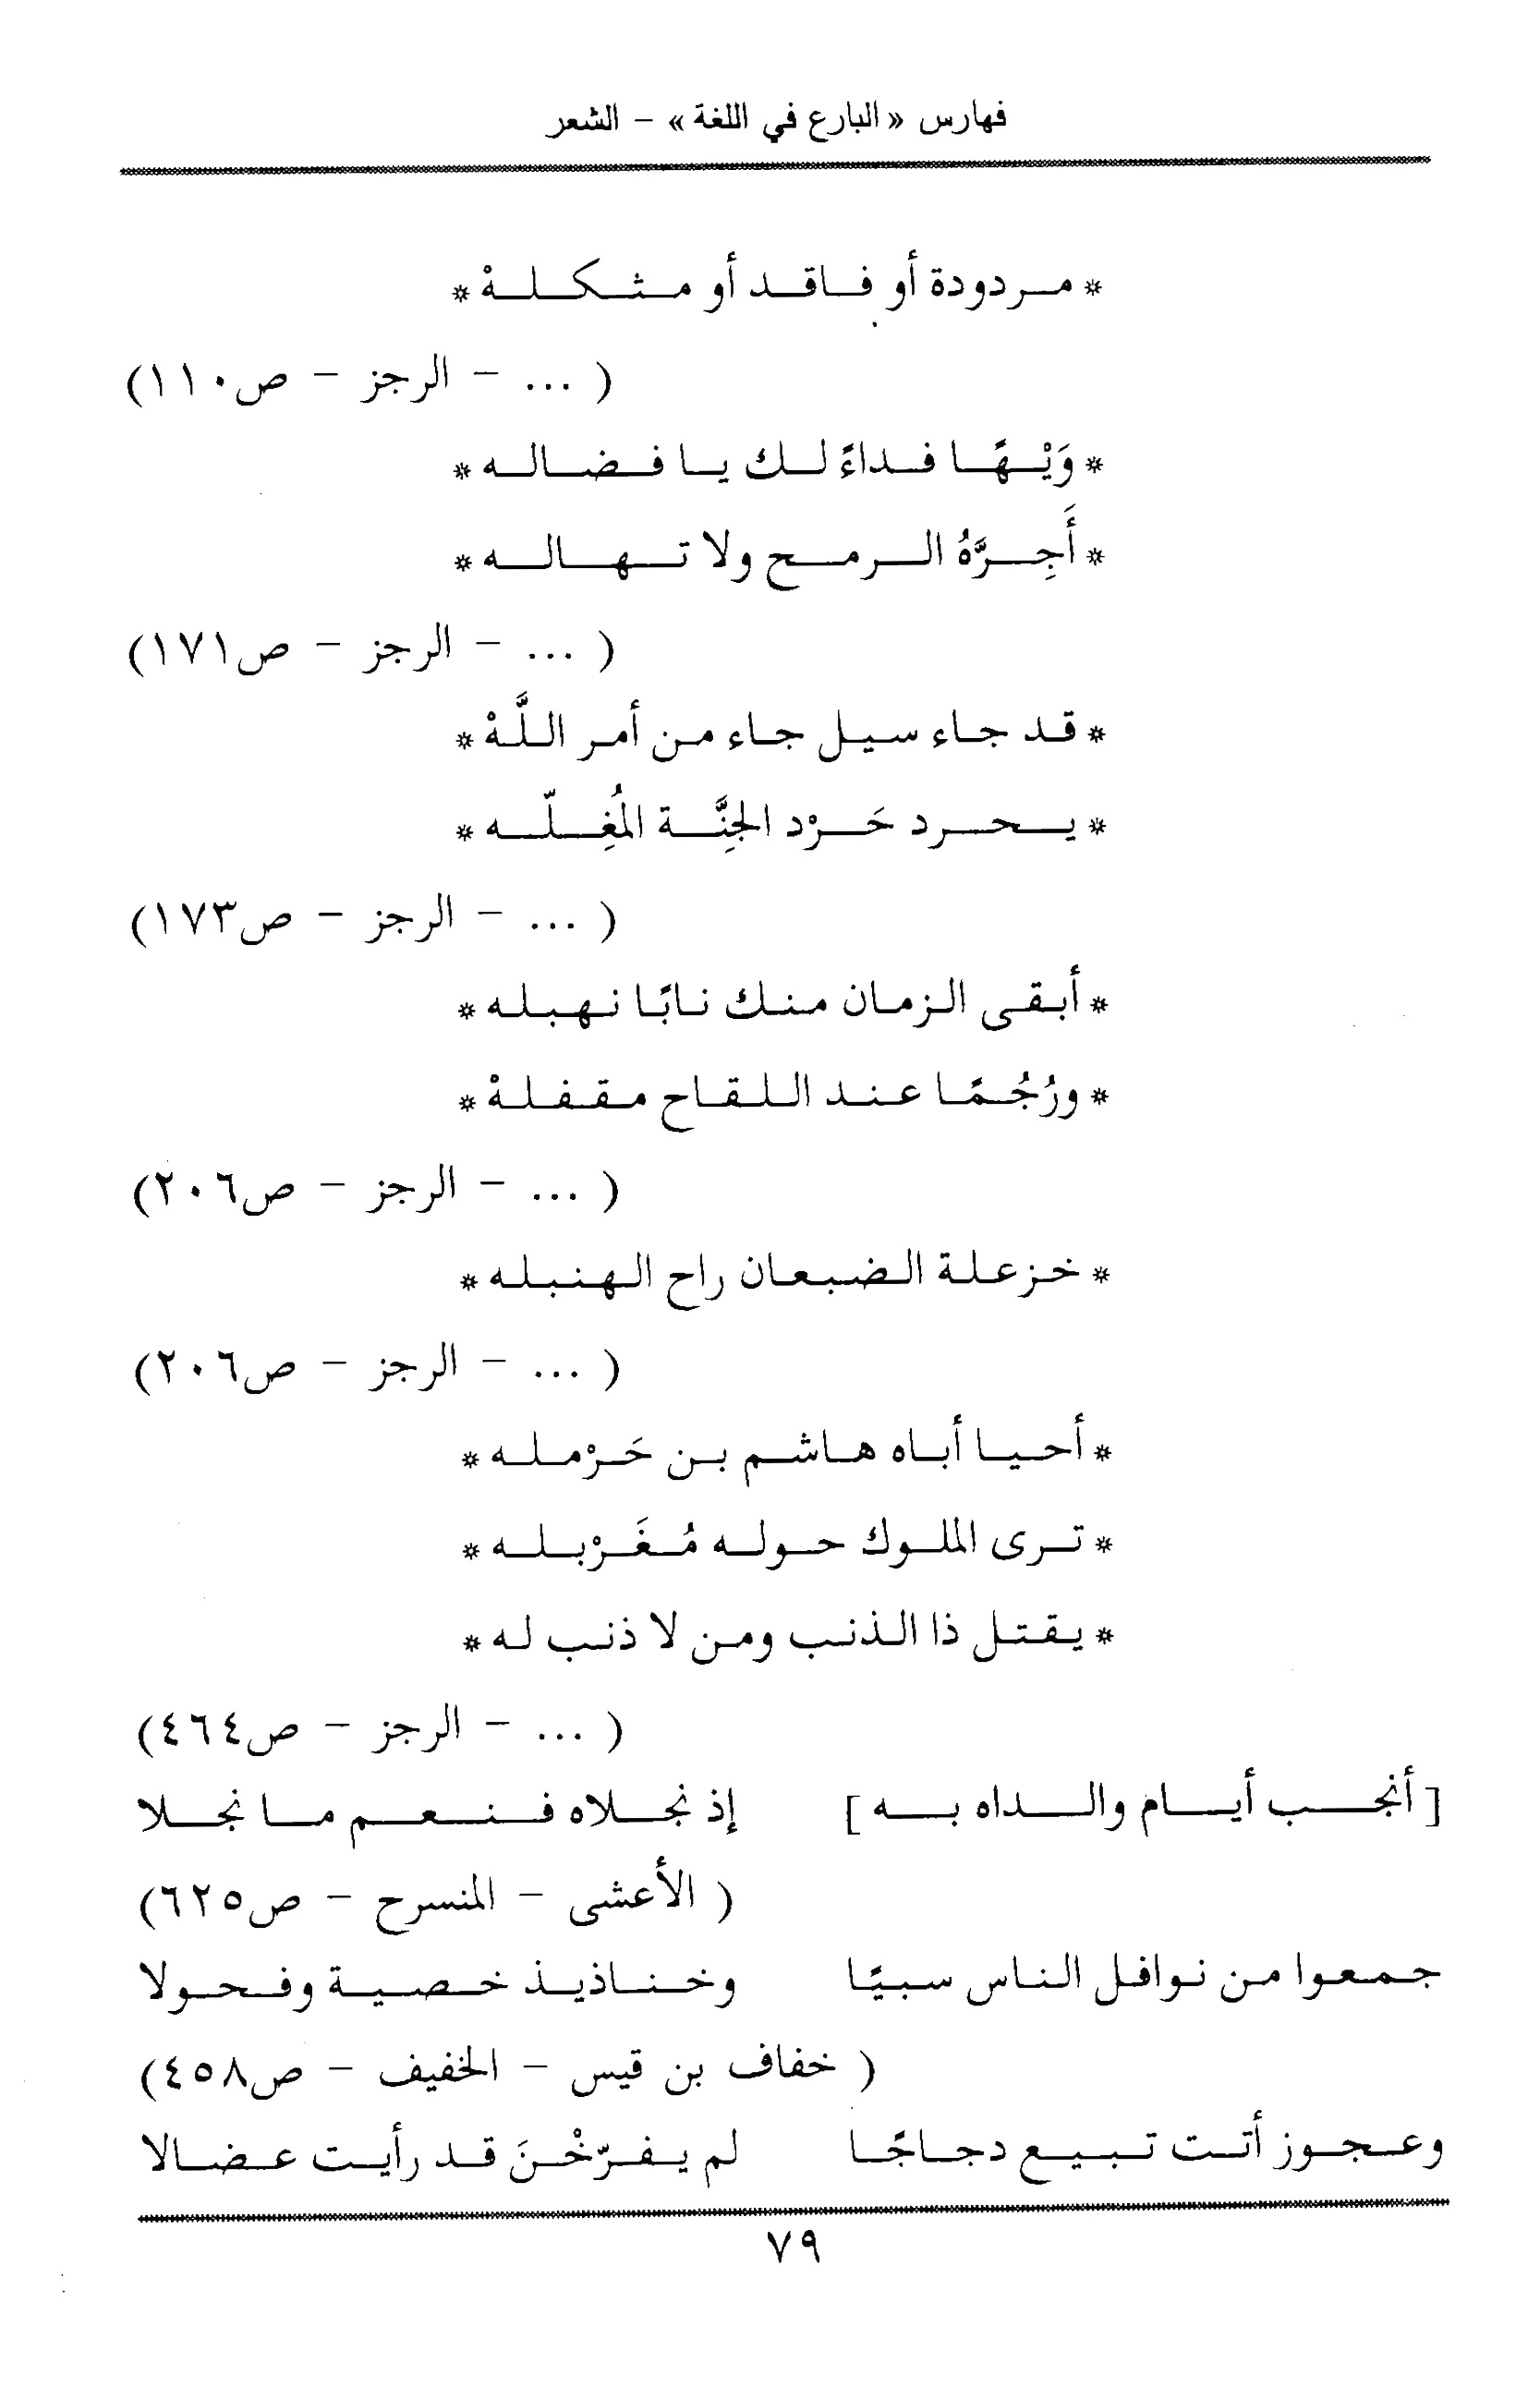 فهارس « البارع في اللغة » – الشعر
* مردودة أو فاقد أو مثكلهْ *
( ... – الرجز – ص١١٠)
* وَيْهًا فداءً لك يا فضاله *
* أَجِرَّهُ الرمح ولا تهاله *
( ... – الرجز – ص١٧١)
* قد جاء سيل جاء من أمر اللَّهْ *
* يحرد حَرْد الجِنَّة المُغِلّه *
( ... – الرجز – ص١٧٣)
* أبقى الزمان منك نابًا نهبله *
* ورُجُمًا عند اللقاح مقفلهْ *
( ... – الرجز – ص٢٠٦)
* خزعلة الضبعان راح الهنبله *
( ... – الرجز – ص٢٠٦)
* أحيا أباه هاشم بن حَرْمله *
* ترى الملوك حوله مُغَرْبله *
* يقتل ذا الذنب ومن لا ذنب له *
( ... – الرجز – ص٤٦٤)
[ أنجب أيام والداه به ] إذ نجلاه فنعم ما نجلا
( الأعشى – المنسرح – ص٦٢٥)
جمعوا من نوافل الناس سبيًا وخناذيذ خصية وفحولا
( خفاف بن قيس – الخفيف – ص٤٥٨)
وعجوز أتت تبيع دجاجًا لم يفرّخْنَ قد رأيت عضالا
٧٩